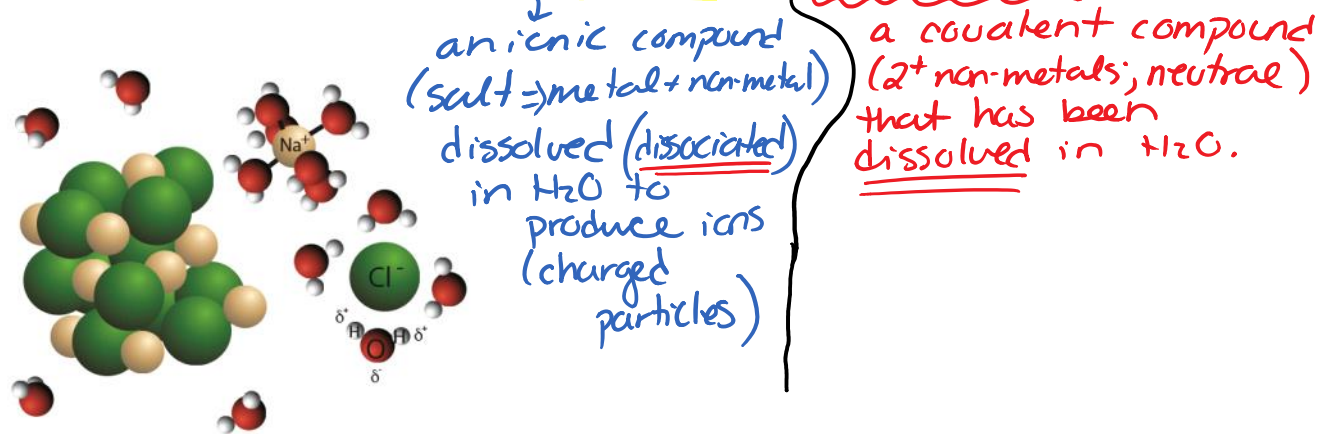 an ionic compound
(salt => metal + non-metal)
dissolved (dissociated)
in H2O to
produce ions
(charged
particles)
a covalent compound
(2+ non-metals; neutral)
that has been
dissolved in H2O.
Na+
Cl-
δ+ H H δ+
O
δ-